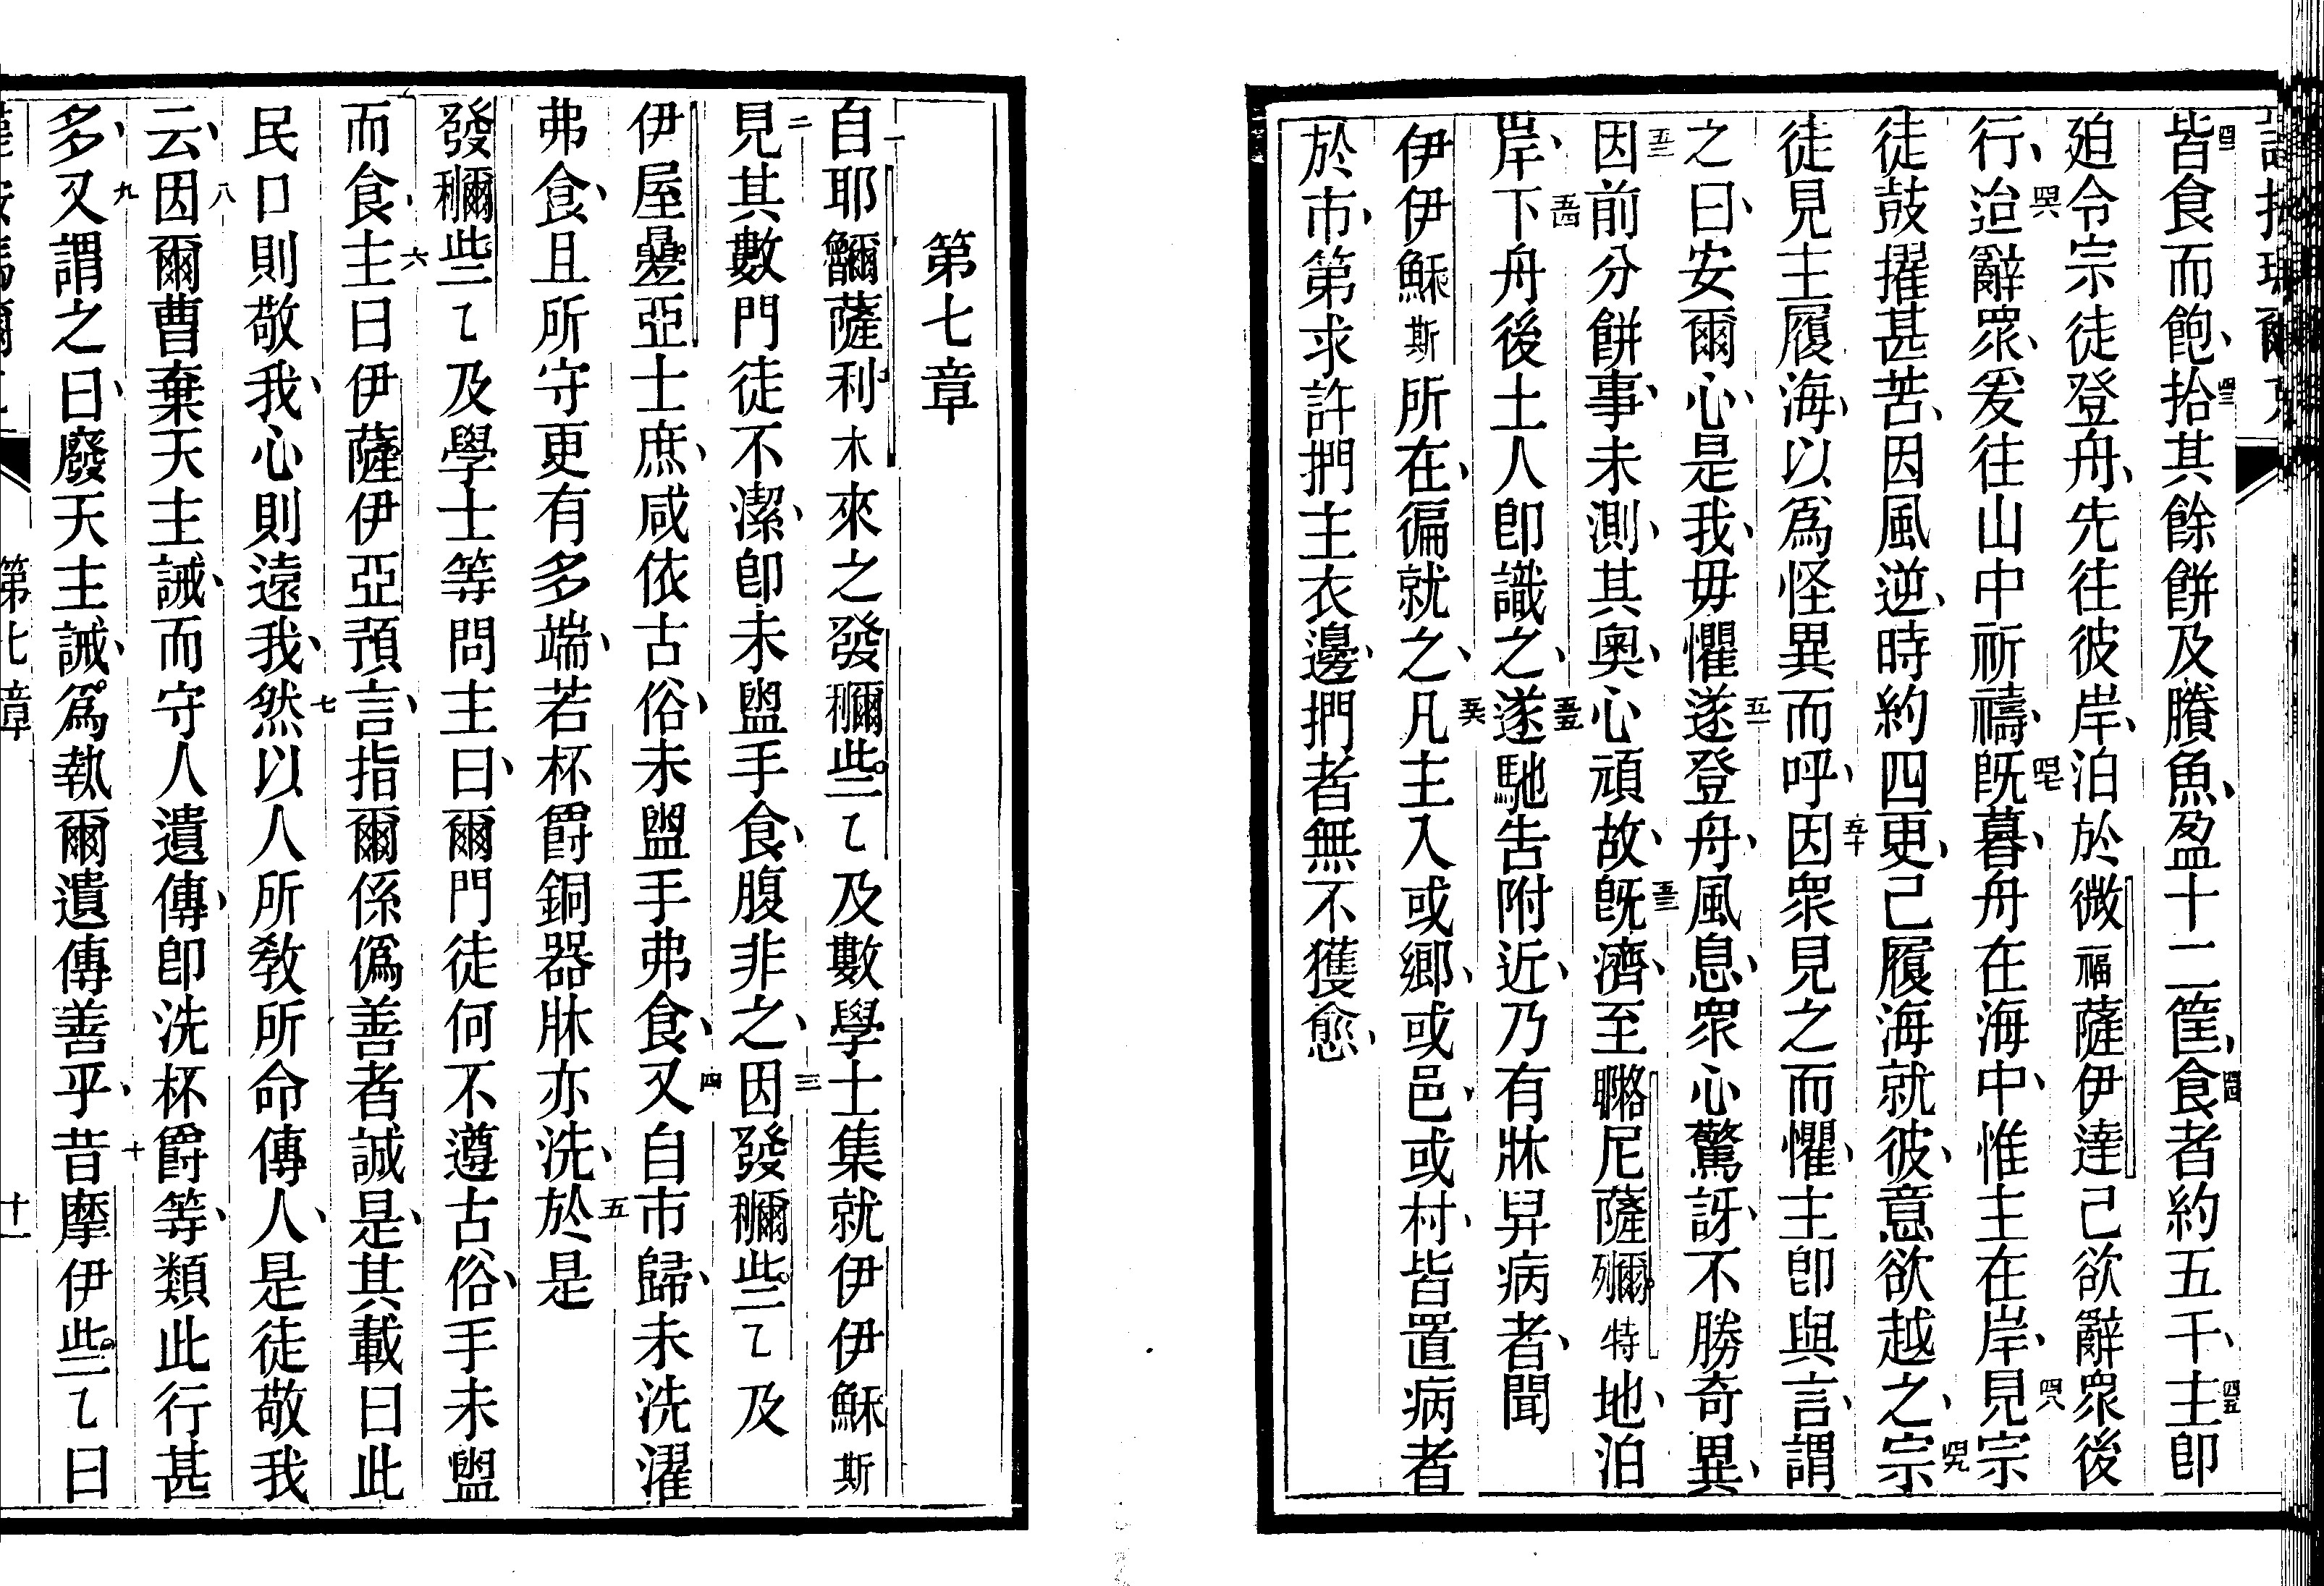 皆食而飽、拾其餘餅及賸魚、盈十二筐、食者約五千、主卽
廹令宗徒登舟、先往彼岸、泊於微福薩伊達己欲辭眾後
行、迨辭眾、爰往山中祈禱、旣暮、舟在海中、惟主在岸、見宗
徒鼓擢甚苦、因風逆、時約四更、己履海就彼、意欲越之、宗
徒見主履海、以爲怪異而呼、因眾見之而懼、主卽與言、謂
之曰、安爾心、是我、毋懼遂登舟、風息、眾心驚訝、不勝奇異、
因前分餅事、未測、其奧、心頑故、旣濟、至尼薩特地、泊
岸、下舟後土人卽識之、遂馳吿附近、乃有牀舁病者、聞
伊伊穌斯所在、徧就之、凡主入或鄉、或邑、或村、皆置病者
於市、第求許捫主衣邊、捫者無不獲愈、
第七章
自耶薩利木來之發些乙及數學士集就伊伊穌斯
見其數門徒不潔、卽未盥手食、腹非之、因發些乙及
伊屋亞士庶、咸依古俗、未盥手弗食、又自市歸、未洗濯
弗食、且所守更有多端、若杯爵銅器牀亦洗、於是
發些乙及學士等問主曰、爾門徒何不遵古俗、手未盥
而食、主曰伊薩伊亞預言、指爾係僞善者誠是、其載曰此
民口則敬我、心則遠我、然以人所敎所命傳人、是徒敬我
云、因爾曹棄天主誡、而守人遺傳、卽洗杯爵等、類此行甚
多、又謂之曰、廢天主誡、爲執爾遺傳善乎、昔摩伊些乙曰
第七章
十一